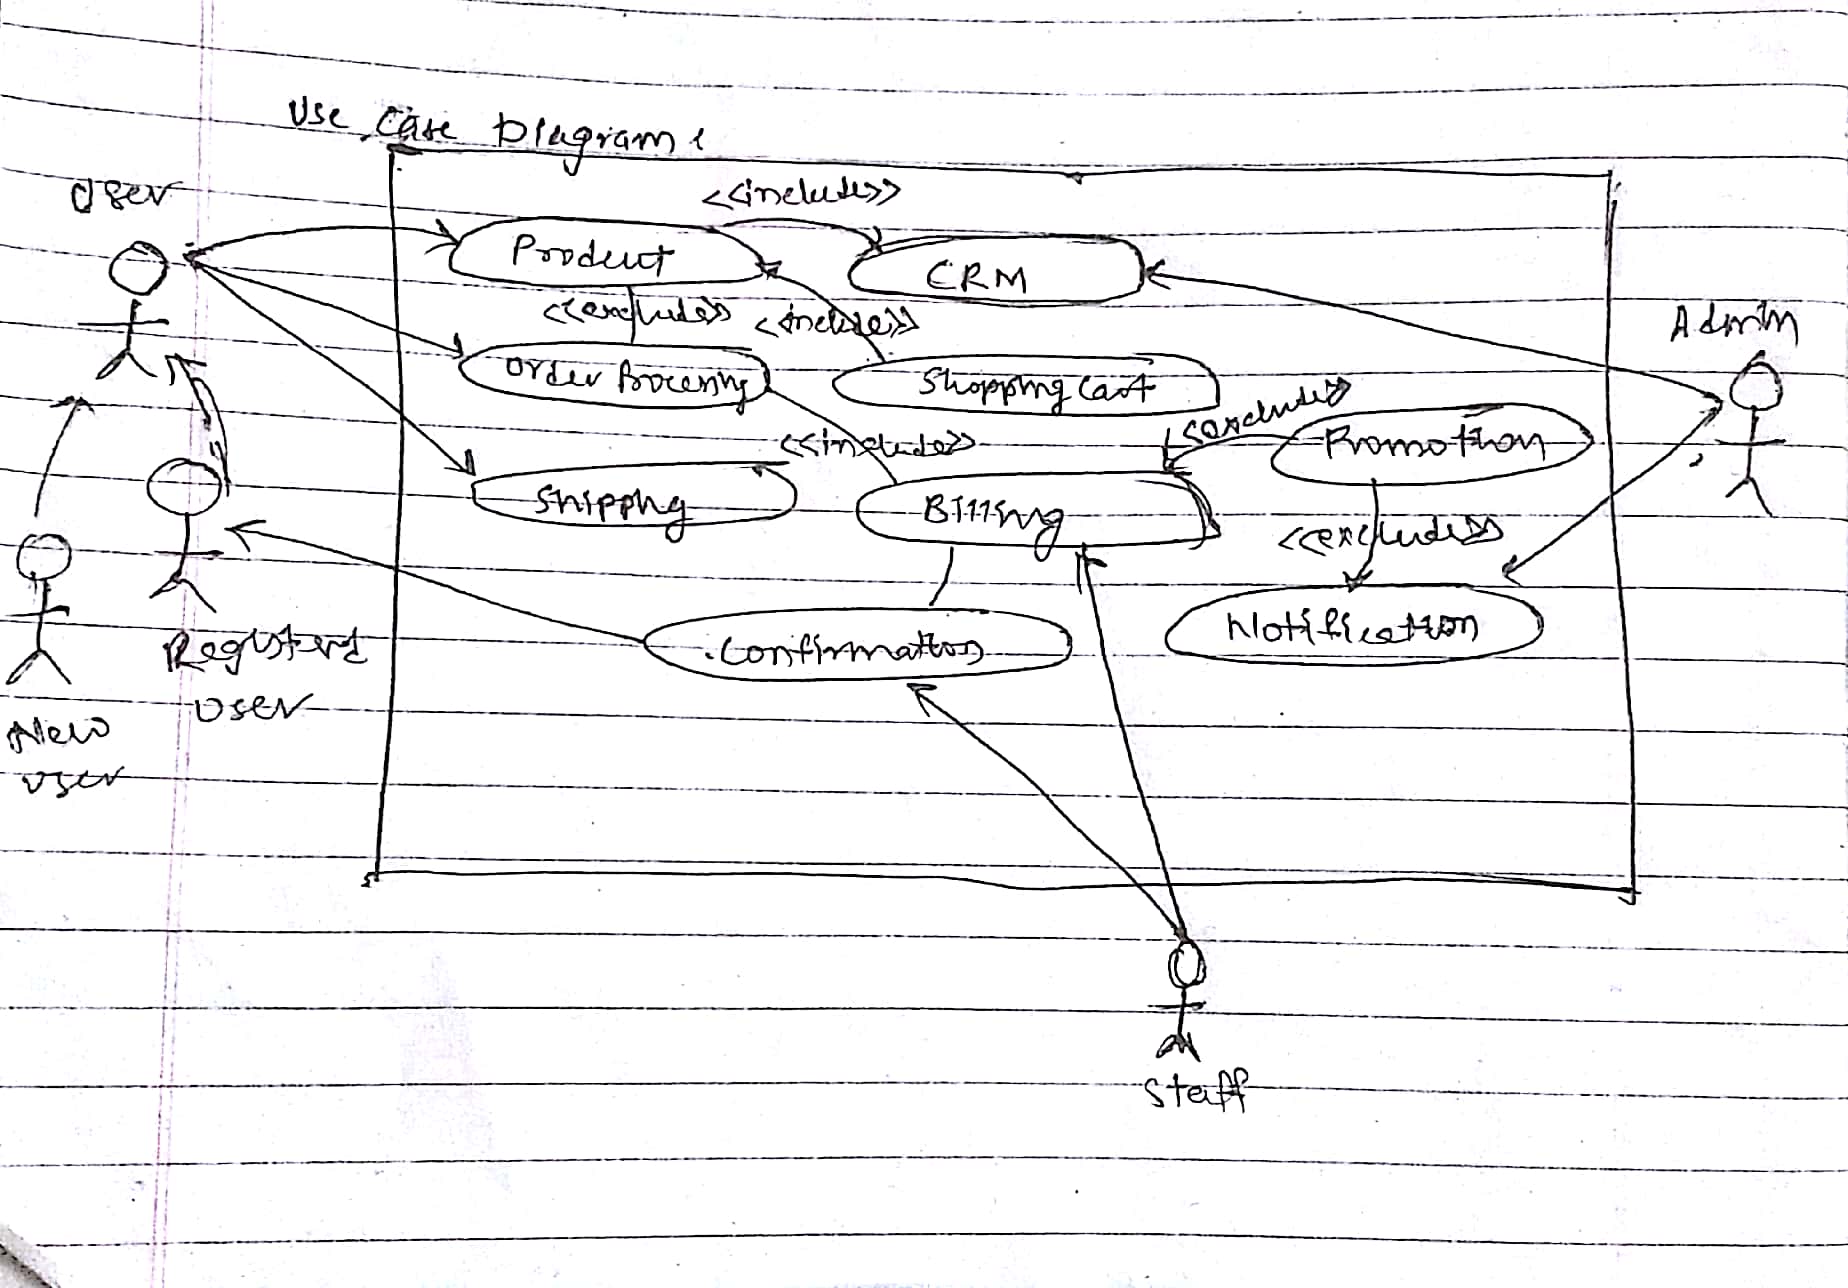 Use Case Diagram:
User
<<include>>
Product
CRM
<<exclude>>
<<include>>
Admin
Order Processing
Shopping Cart
<<exclude>>
Promotion
<<include>>
Shipping
Billing
<<exclude>>
Notification
Confirmation
Registerd
User
New
User
Staff